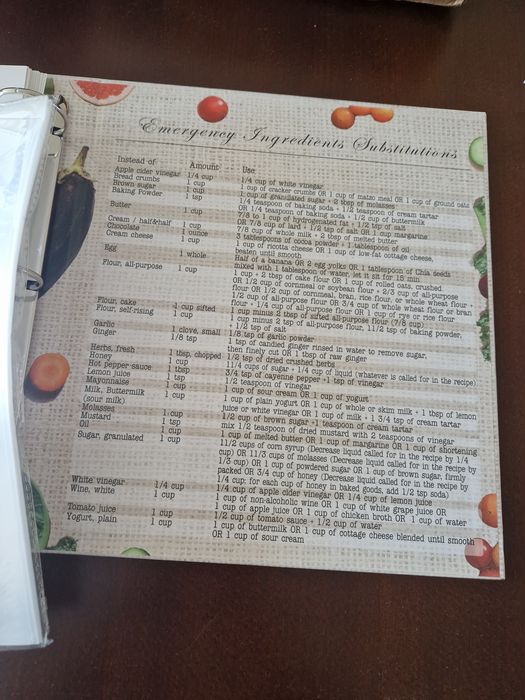 Emergency Ingredients Substitutions
Instead of Amount Use
Apple cider vinegar 1/4 cup 1/4 cup of white vinegar
Bread crumbs 1 cup 1 cup of cracker crumbs OR 1 cup of matzo meal OR 1 cup of ground oats
Brown sugar 1 cup 1 cup of granulated sugar + 2 tbsp of molasses
Baking Powder 1 tsp 1/4 teaspoon of baking soda + 1/2 teaspoon of cream of tartar
OR 1/4 teaspoon of baking soda + 1/2 cup of buttermilk
Butter 1 cup 7/8 to 1 cup of hydrogenated fat + 1/2 tsp of salt
OR 7/8 cup of lard + 1/2 tsp of salt OR 1 cup margarine
Cream / half&half 1 cup 7/8 cup of whole milk + 2 tbsp of melted butter
Chocolate 1 ounce 3 tablespoons of cocoa powder + 1 tablespoon of oil
Cream cheese 1 cup 1 cup of ricotta cheese OR 1 cup of low-fat cottage cheese,
beaten until smooth
Egg 1 whole Half of a banana OR 2 egg yolks OR 1 tablespoon of Chia seeds
mixed with 1 tablespoon of water, let it sit for 15 min
Flour, all-purpose 1 cup 1 cup + 2 tbsp of cake flour OR 1 cup of rolled oats, crushed
OR 1/2 cup of cornmeal or soybean flour + 2/3 cup of all-purpose
flour OR 1/2 cup of cornmeal, bran, rice flour, or whole wheat flour +
1/2 cup of all-purpose flour OR 3/4 cup of whole wheat flour or bran
flour + 1/4 cup of all-purpose flour OR 1 cup of rye or rice flour
Flour, cake 1 cup sifted 1 cup minus 2 tbsp of sifted all-purpose flour (7/8 cup)
Flour, self-rising 1 cup 1 cup minus 2 tsp of all-purpose flour, 11/2 tsp of baking powder,
+ 1/2 tsp of salt
Garlic 1 clove, small 1/8 tsp of garlic powder
Ginger 1/8 tsp 1 tsp of candied ginger rinsed in water to remove sugar,
then finely cut OR 1 tbsp of raw ginger
Herbs, fresh 1 tbsp, chopped 1/2 tsp of dried crushed herbs
Honey 1 cup 11/4 cups of sugar + 1/4 cup of liquid (whatever is called for in the recipe)
Hot pepper sauce 1 tbsp 3/4 tsp of cayenne pepper +1 tsp of vinegar
Lemon juice 1 tsp 1/2 teaspoon of vinegar
Mayonnaise 1 cup 1 cup of sour cream OR 1 cup of yogurt
Milk, Buttermilk 1 cup 1 cup of plain yogurt OR 1 cup of whole or skim milk + 1 tbsp of lemon
(sour milk) juice or white vinegar OR 1 cup of milk + 1 3/4 tsp of cream tartar
Molasses 1 cup 1/2 cup of brown sugar +1 teaspoon of cream tartar
Mustard 1 tsp mix 1/2 teaspoon of dried mustard with 2 teaspoons of vinegar
Oil 1 cup 1 cup of melted butter OR 1 cup of margarine OR 1 cup of shortening
Sugar, granulated 1 cup 11/2 cups of corn syrup (Decrease liquid called for in the recipe by 1/4
cup) OR 11/3 cups of molasses (Decrease liquid called for in the recipe by
1/3 cup) OR 1 cup of powdered sugar OR 1 cup of brown sugar, firmly
packed OR 3/4 cup of honey (Decrease liquid called for in the recipe by
1/4 cup: for each cup of honey in baked goods, add 1/2 tsp soda)
White vinegar 1/4 cup 1/4 cup of apple cider vinegar OR 1/4 cup of lemon juice
Wine, white 1 cup 1 cup of non-alcoholic wine OR 1 cup of white grape juice OR
1 cup of apple juice OR 1 cup of chicken broth OR 1 cup of water
Tomato juice 1 cup 1/2 cup of tomato sauce + 1/2 cup of water
Yogurt, plain 1 cup 1 cup of buttermilk OR 1 cup of cottage cheese blended until smooth
OR 1 cup of sour cream